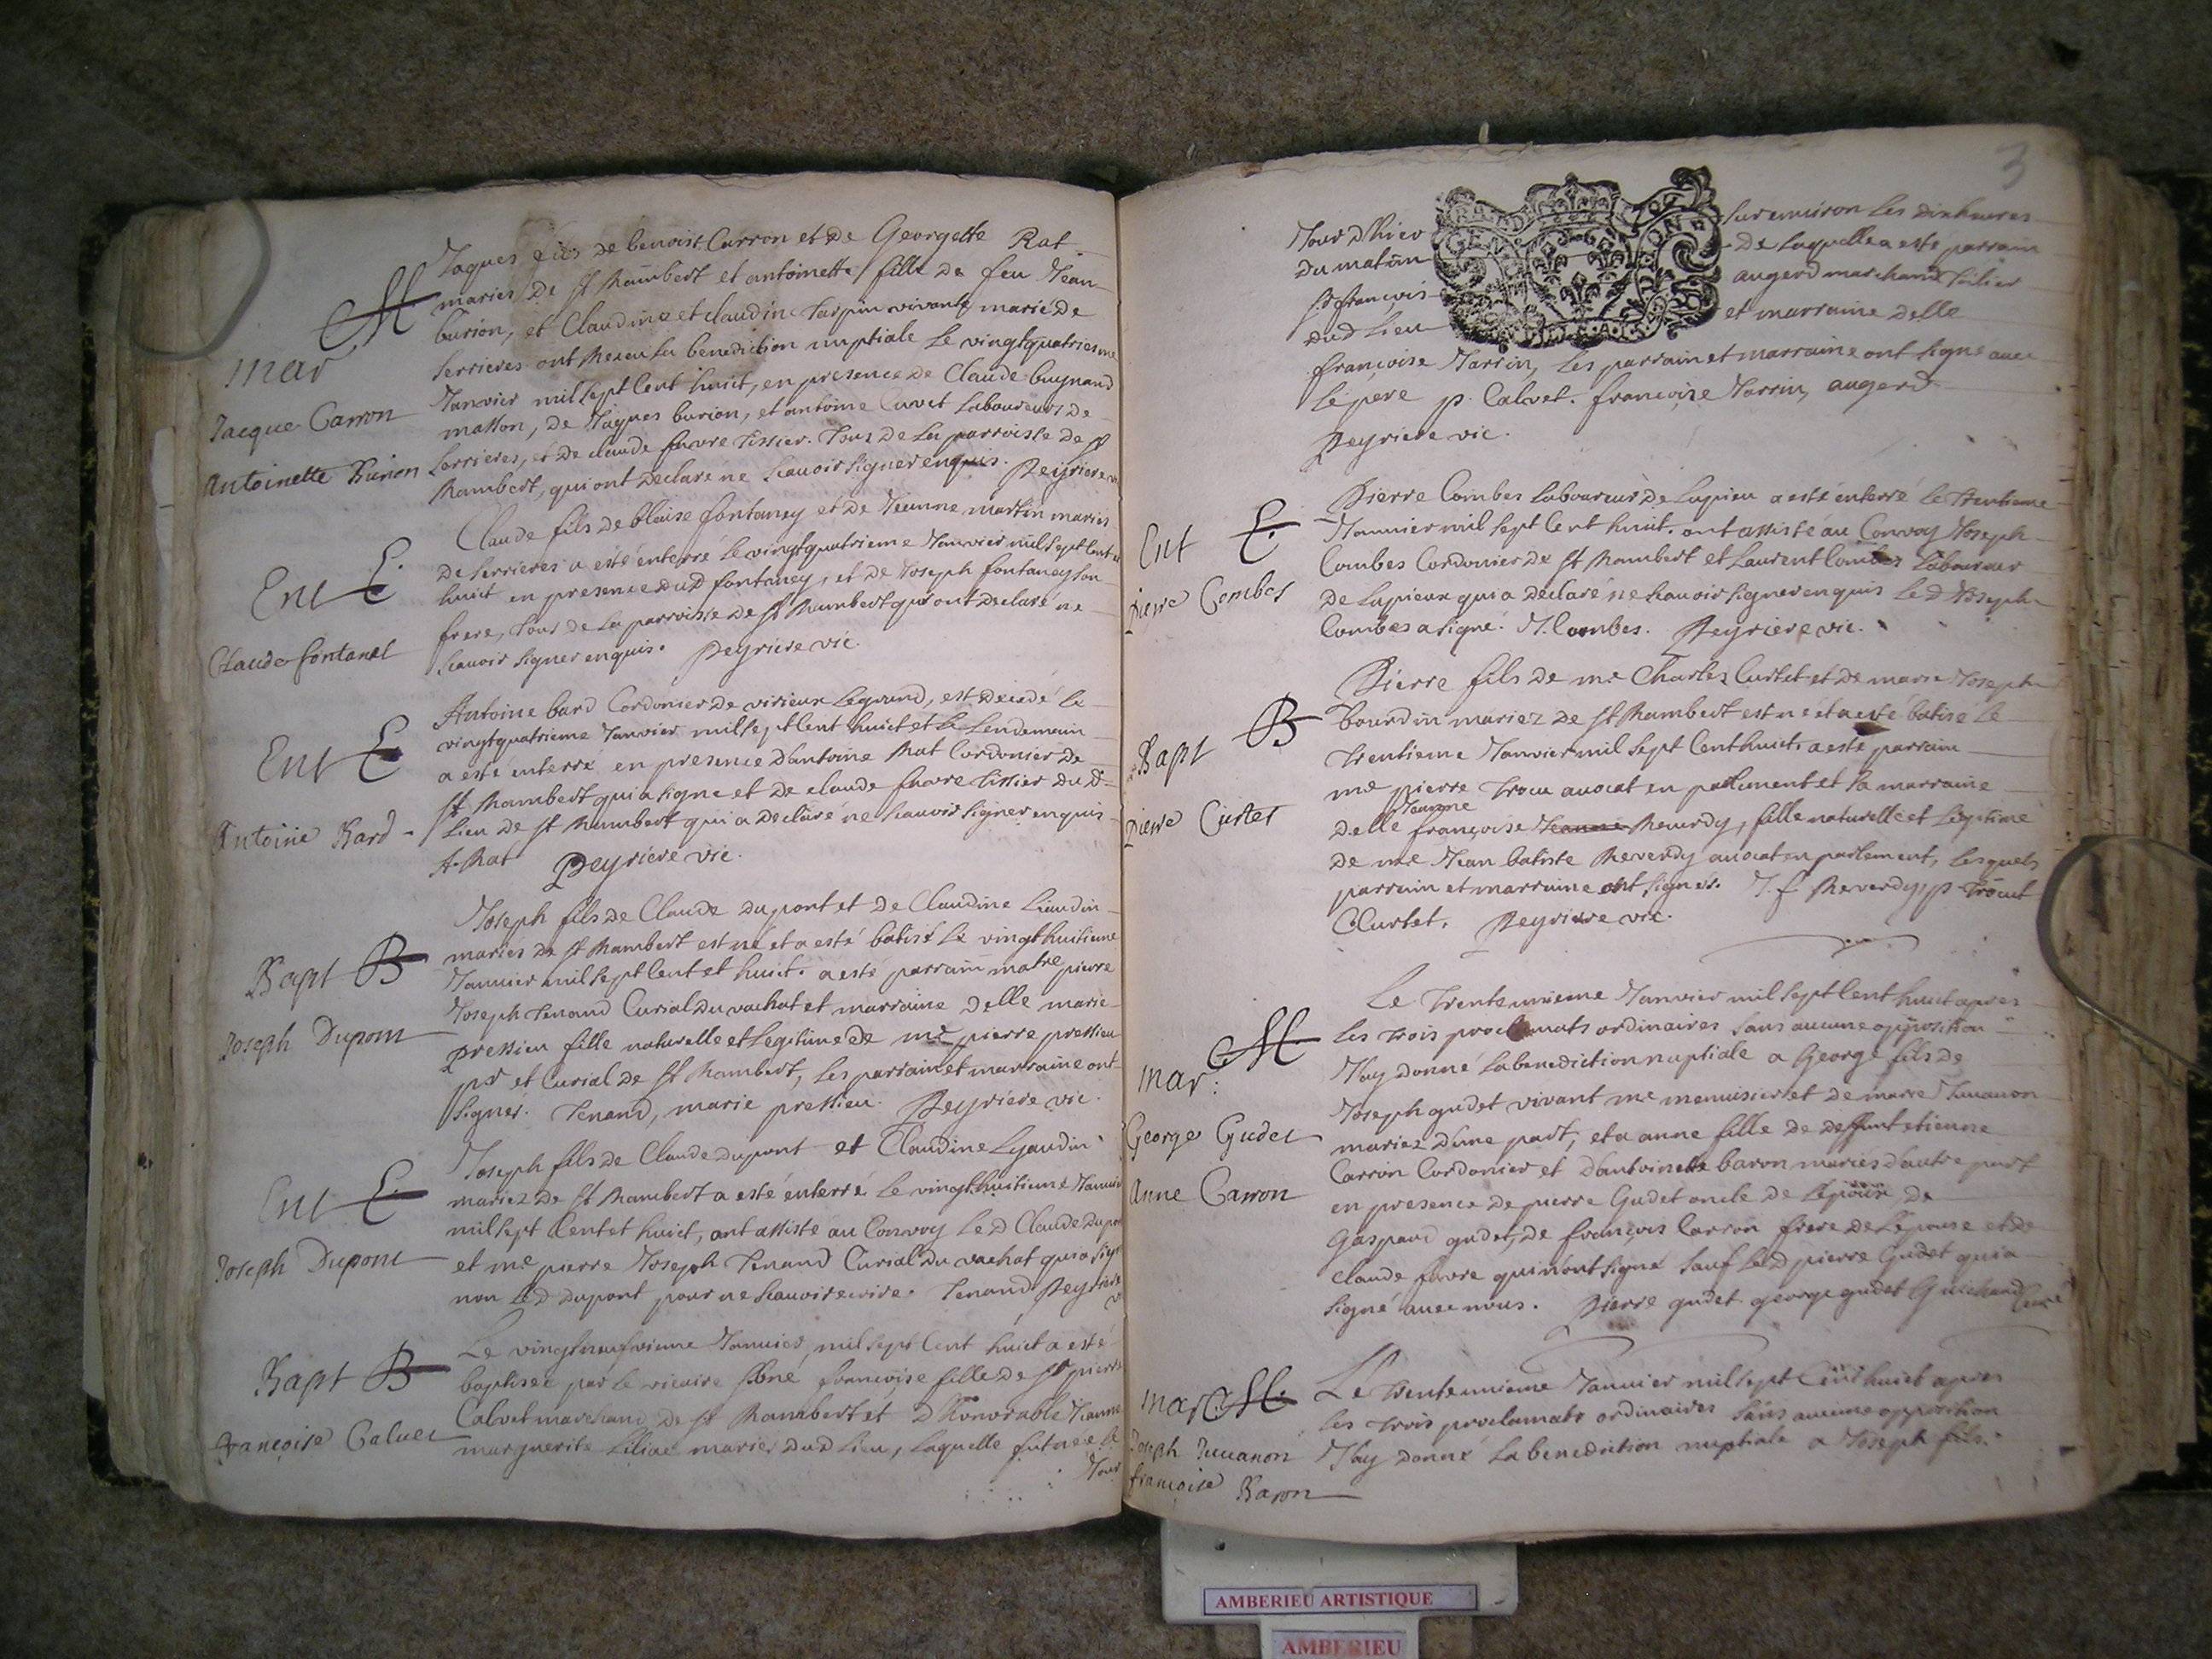 Jaques fils de benoist Carron et de Georgette Rat
M maries de st Rambert et antoinette fille de feu Jean
burion, et Claudine et claudine Tarpin vivants mariéde
mar
Serrieres ont Receu La benediction nuptiale Le vingtquatriesme
Janvier mil sept Cent huict, en presence de Claude buynand
Jacque Carron
masson, de Jaques burion, et antoine Curvet Laboureurs de
Antoinette Burion
Serrieres, et de claude favre tissier. tous de La parroisse de st
Rambert, qui ont declaré ne scauoir signer enquis. Peyriere v
Claude fils de blaise fontaney et de Jeanne martin maries
Ent E.
de serrieres a esté enterré le vingtquatrieme Janvier mil sept Cent
huict en presence dud fontaney, et de Joseph fontaney son
frere, tous de La parroisse de st Rambert qui ont declaré ne
Claude fontanel
scauoir signer enquis. Peyriere vic.
Antoine bard Cordonier de virieux Legrand, est decedé le
vingtquatrieme Janvier mil sept Cent huict et Le Lendemain
Ent E
a esté enterré en presence dantoine Rat Cordonier de
st Rambert qui a signe et de claude favre tissier du d
Antoine Bard
Lieu de st Rambert qui a declaré ne scauoir signer enquis
A. Rat Peyriere vic.
Joseph fils de Claude dupont et de Claudine Liaudin
Bapt B
maries de st Rambert est né et a esté batisé le vingt huitieme
Januier mil sept Cent et huict. a esté parrain matre pierre
Joseph Tenand Curial du vachat et marraine delle marie
Joseph Dupont
pressieu fille naturelle et Legitime de me pierre pressieu
pr et Curial de st Rambert, Les parrain et marraine ont
signés. Tenand, marie pressieu. Peyriere vic.
Joseph fils de Claude dupont et Claudine Lyaudin
Ent E
mariez de st Rambert a esté enterré le vingt huitieme Januier
mil sept Cent et huict, ont assisté au Convoy le d Claude dupont
Joseph Dupont
et me pierre Joseph Tenand Curial du vachat qui a signé
non led dupont pour ne scauoir ecrire. Tenand Peyriere
v
Le vingt neufvieme Januier mil sept Cent huict a esté
Bapt B
baptisee par le vicaire sbne francoise fille de sr pierre
Calvet marchand de st Rambert et dhonorable Jeanne
francoise Caluet
marguerite Liliac maries dud Lieu, Laquelle fut nee le
Jour
3
Jour dhier
sur enuiron Les dix heures
du matin
de Laquelle a esté parrain
sr francois
augerd marchand
dud Lieu
et marraine delle
GEN
francoise Jarrin, Les parrain et marraine ont signe auec
Le pere p. Calvet. francoise Jarrin, augerd
Peyriere vic.
Pierre Combes Laboureur de Lupieu a esté enterré le trentieme
Ent E.
Januier mil sept Cent huit. ont assisté au Convoy Joseph
Combes Cordonier de st Rambert et Laurent Combes Laboureur
Pierre Combes
de Lupieux qui a declaré ne scauoir signer enquis Le d Joseph
Combes a signé. J. Combes. Peyriere vic.
Pierre fils de me Charles Curtet et de marie Joseph
B
bourdin mariez de st Rambert est né et a esté batisé le
Bapt
trentieme Janvier mil sept Cent huict. a esté parrain
me pierre trocu auocat en parlement et sa marraine
Jeanne
Pierre Curtet
delle francoise Jeanne Reuerdy, fille naturelle et Legitime
de me Jean batiste Reverdy auocat en parlement, Lesquels
parrain et marraine ont signés. J. f Reverdy, p trocut
Curtet. Peyriere vic.
Le trenteunieme Janvier mil sept Cent huit apres
M
Les trois proclamats ordinaires sans aucune opposition
mar.
Jay donné La benediction nuptiale a George fils de
Joseph gudet vivant me menuisier et de marie Juuanon
George Gudet
mariez dune part, et a anne fille de deffunt etienne
Carron Cordonier et dantoinette baron maries dautre part
Anne Carron
en presence de pierre Gudet oncle de Lépoux, de
Gaspard gudet, de francois Carron frere de Lépouse et de
claude favre qui n'ont signé sauf Led pierre Gudet qui a
signé auec nous. Pierre gudet george gudet Guichand Curé
Mar M.
Le trenteunieme Januier mil sept Cent huict apres
les trois proclamats ordinaires sans aucune opposition
Joseph Juuanon
Jay donné La benediction nuptiale a Joseph fils
francoise Baron
AMBERIEU ARTISTIQUE
AMBERIEU